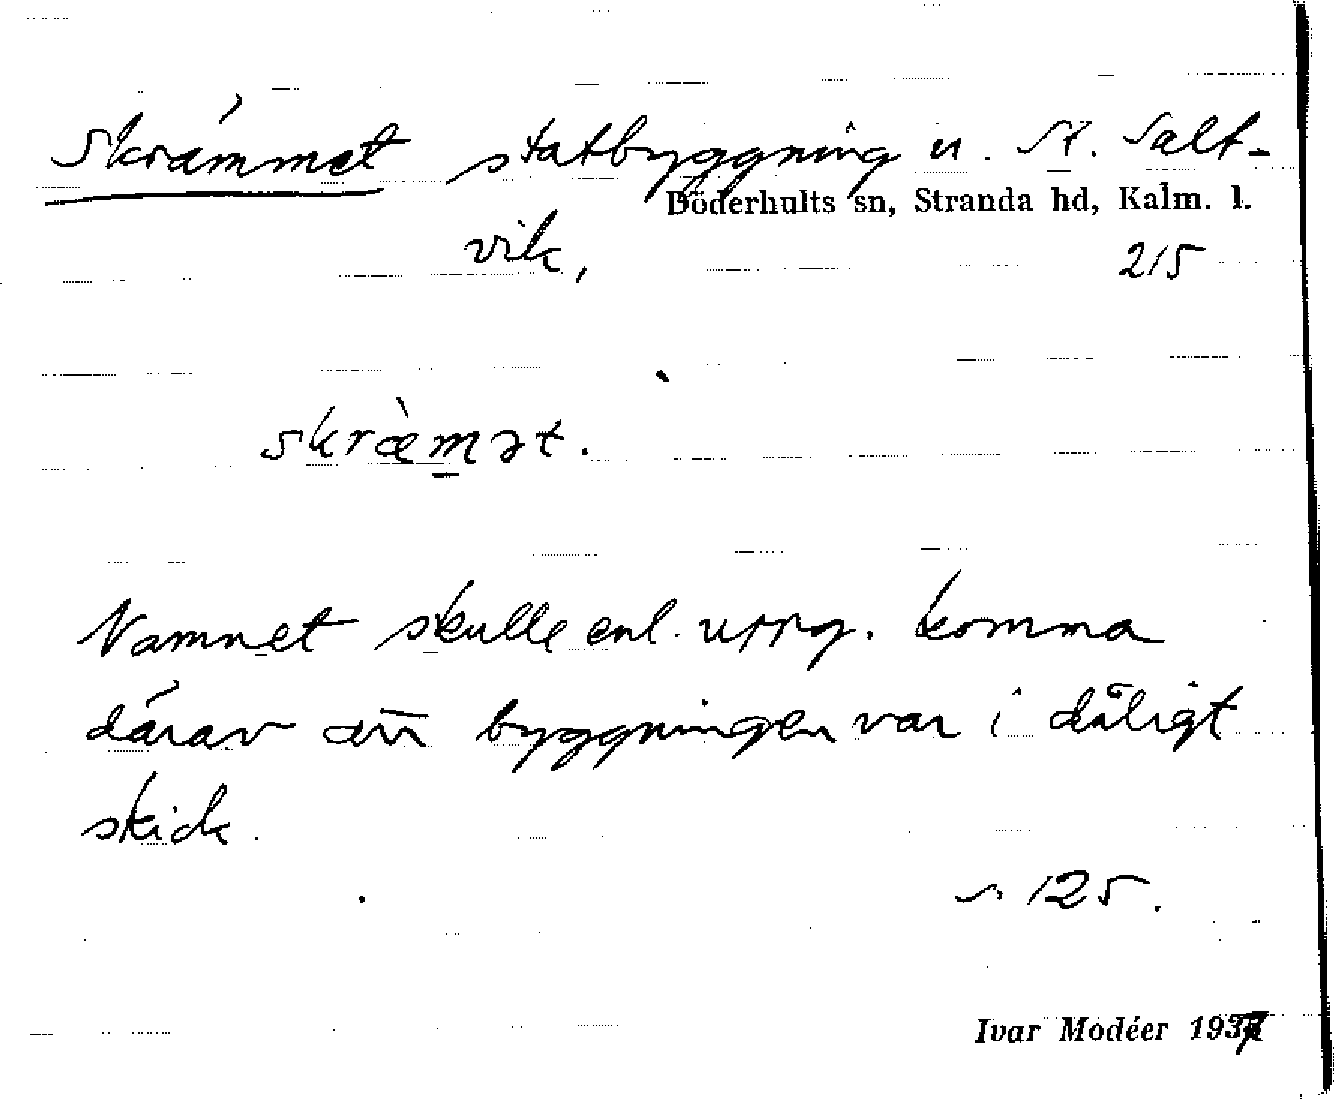 Skrammet statbyggning u. St. Salt-
Döderhults sn, Stranda hd, Kalm. l.
vik,
215
skræ̀mət.
Namnet skulle enl. uppg. komma
därav att byggningen var i dåligt
skick.
s 125.
Ivar Modéer 1937